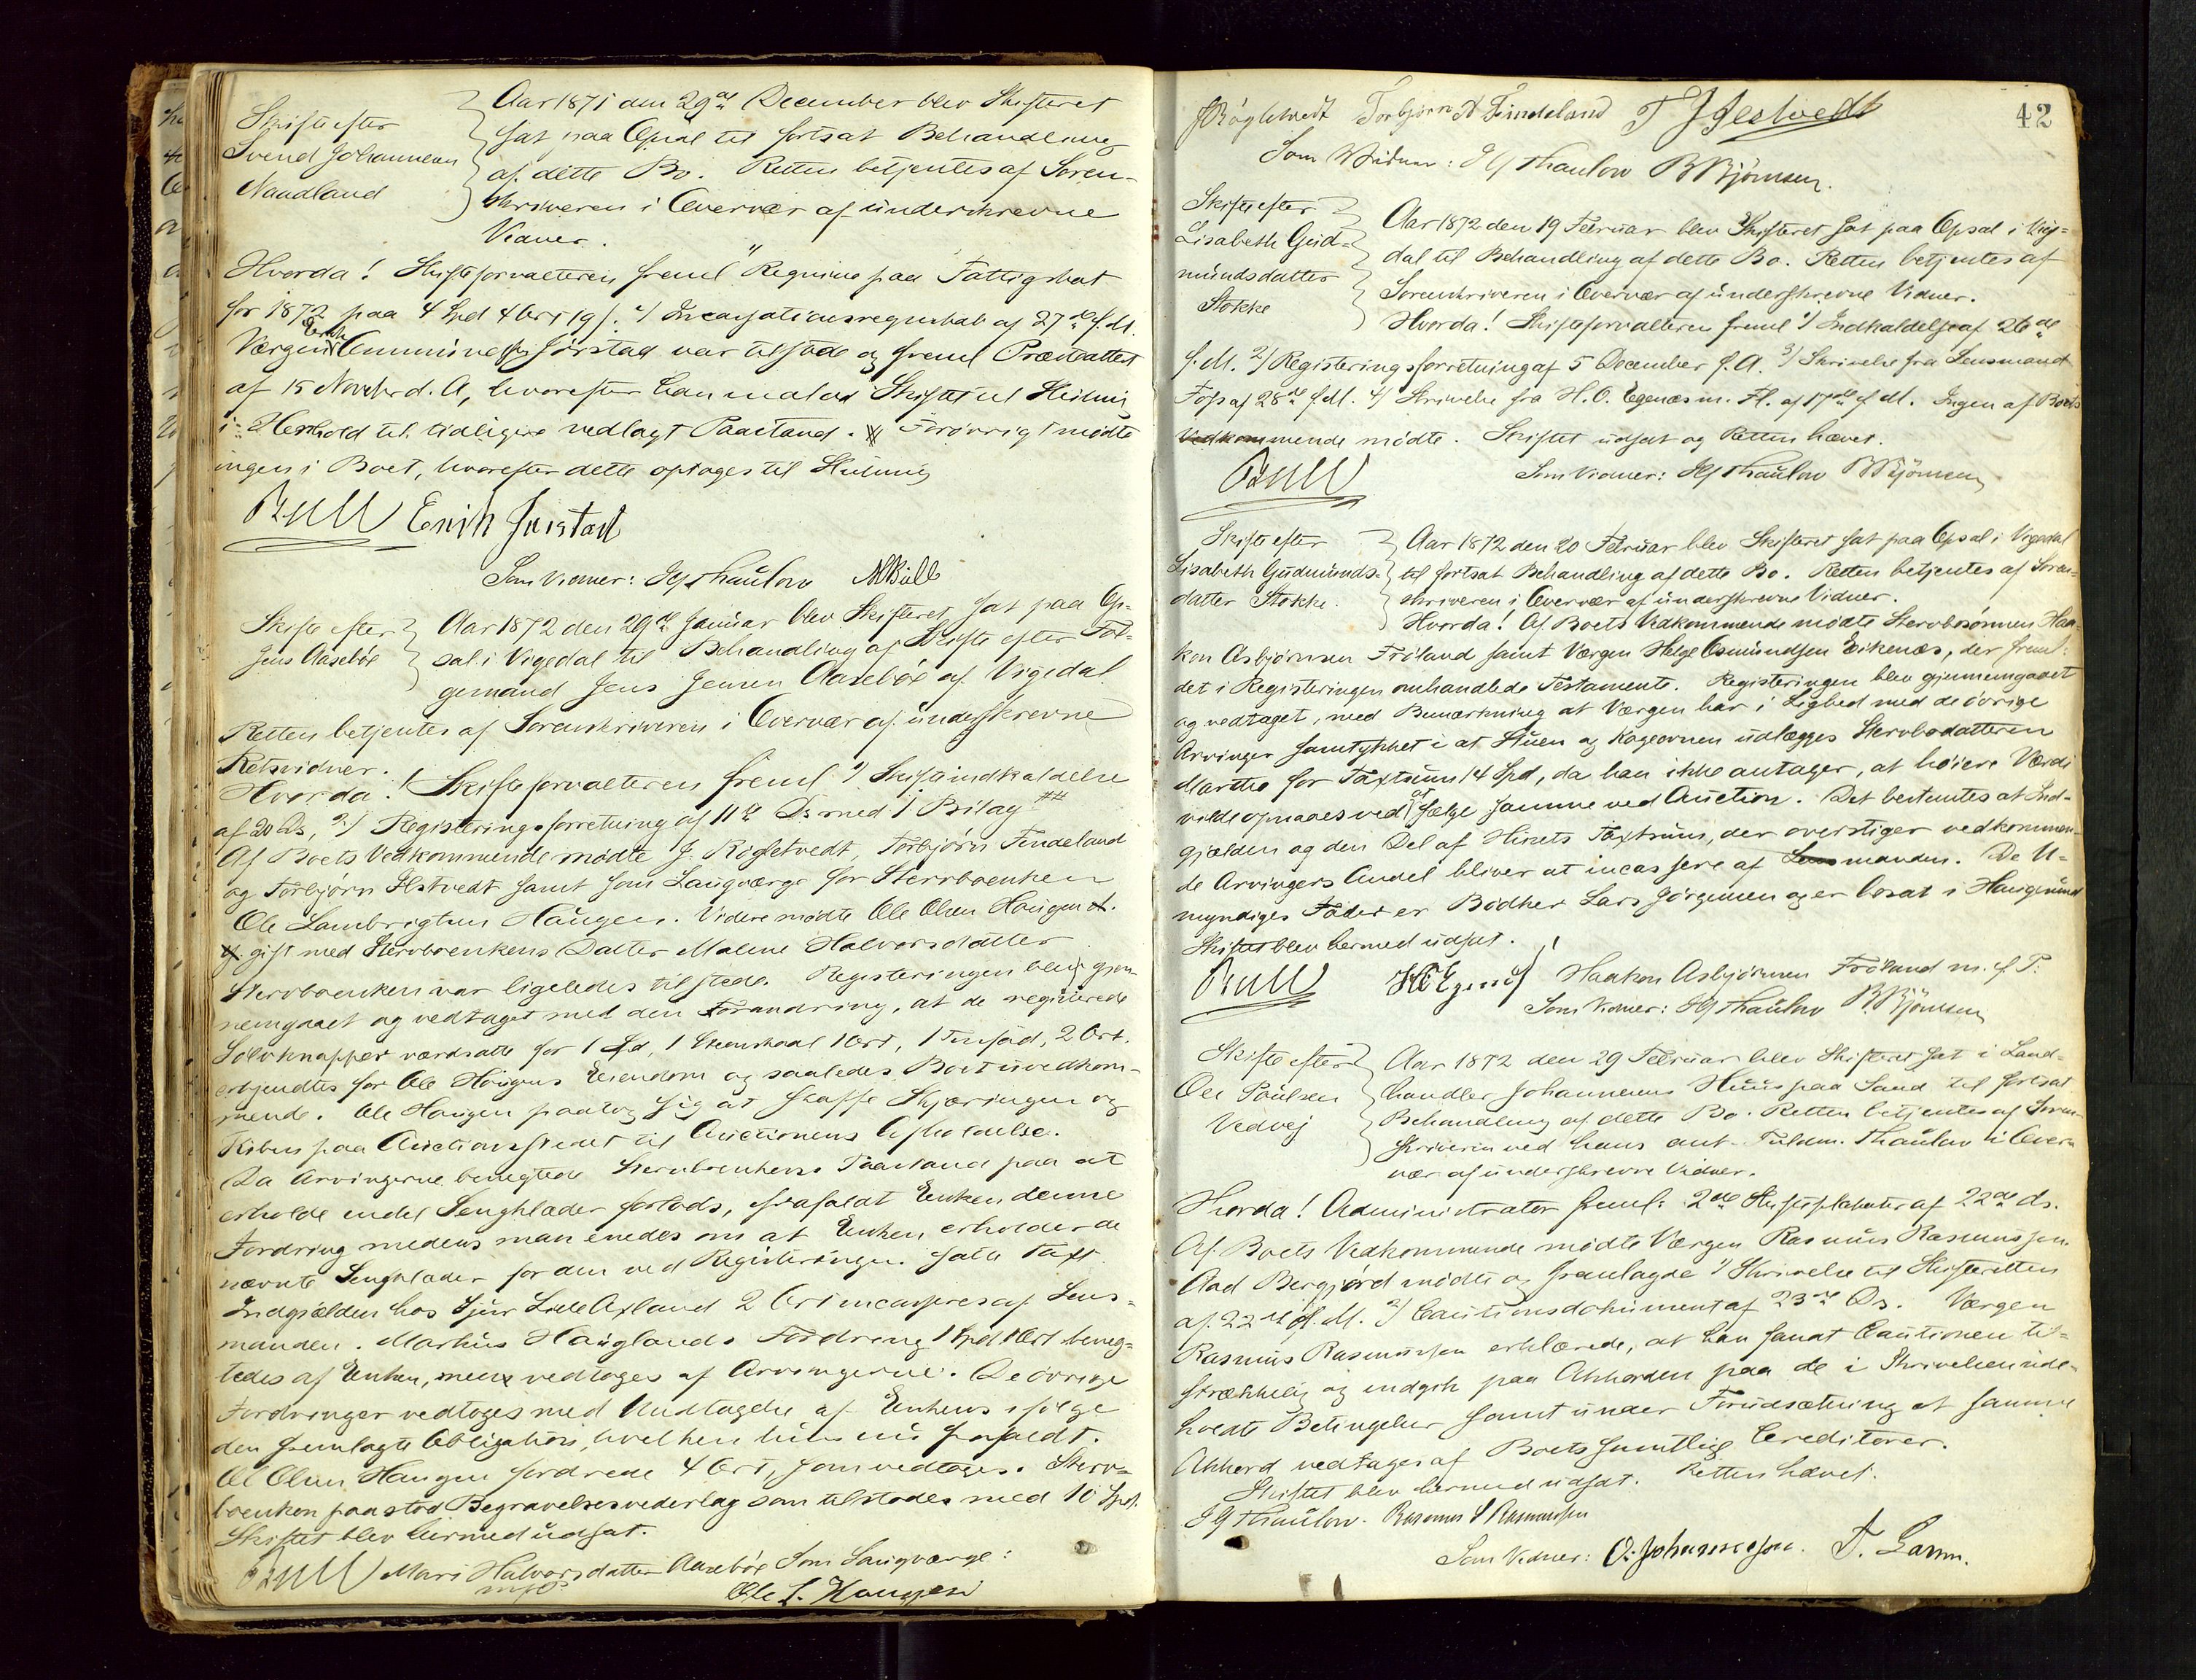 Skifte efter
Svend Johannesen
Naadland
Aar 1871 den 29de December blev Skifteret
sat paa Opsal til fortsat Behandling
af dette Bo. Retten betjentes af Soren-
skriveren i Overvær af underskrevne
Vidner.
Hvorda! Skifteforvalteren freml 1) Regning paa Fattigskat
for 1872 paa 4 Spd 4 Ort 19 s. 2) Incassationsregnskab af 27de f.M.
Værgen Erik Jørstad var tilstede og freml Præsteattest
af 15 Novbr d. A, hvorefter han indlod Skiftet til Slutning
i Henhold til tidligere nedlagt Paastand. Forøvrigt mødte
ingen i Boet, hvorefter dette optoges til Slutning
Bull Erik Jørstad
Som Vidner: JG Thaulow MBull
Skifte efter
Jens Aasebøe
Aar 1872 den 29de Januar blev Skifteret sat paa Op-
sal i Vigedal til Behandling af Skifte efter Føl-
gemand Jens Jensen Aasebøe af Vigedal
Retten betjentes af Sorenskriveren i Overvær af underskrevne
Retsvidner.
Hvorda! Skifteforvalteren freml 1) Skifteindkaldelse
af 20 Ds, 2) Registeringsforretning af 11te Ds med 1 Bilag
Af Boets Vedkommende mødte J. Røgletvedt, Torbjørn Findeland
og Torbjørn Ilstvedt samt som Laugværge for Stervboenken
Ole Lambrigtsen Haugen. Videre mødte Ole Olsen Haugen
gift med Stervboenkens Datter Malene Halvorsdatter
Stervboenken var ligeledes tilstede. Registeringen blev gjen-
nemgaaet og vedtaget med den Forandring, at de registrerede
Sølvknapper værdsatte for 1 Spd, 1 Ort, 2 Ort.
erkjendtes for Ole Haugens Eiendom og saaledes Boet uvedkom-
mende. Ole Haugen paatog sig at skaffe Skjæringen og
paa Auctionsstedet til Auctionens Afholdelse.
Da Arvingerne benegtede Stervboenkens Paastand paa at
erholde endel Sengklæder forlods, frafaldt Enken denne
Fordring medens man enedes om at Enken erholder de
nævnte Sengklæder for den ved Registeringen satte Taxt.
Indgjælden hos Lille Axland 2 Ort incasseres af Lens-
manden. Markus Hauglands Fordring 1 Spd 1 Ort beneg-
tedes af Enken, men vedtoges af Arvingerne. De øvrige
Fordringer vedtoges med Undtagelse af Enkens ifølge
den fremlagte Obligation, hvilken hun nu frafaldt.
Ole Olsen Haugen fordrede 4 Ort, som vedtoges. Sterv-
boenken paastod Begravelsesvederlag som tilstodes med 10 Spd.
Skiftet blev hermed udsat.
Bull Mari Halvorsdatter Aasebøe Som Laugværge:
m. f. P. Ole L. Haugen
42
J Røgletvedt Torbjørn A Findeland T J Ilestvedt
Som Vidner: JG Thaulow B Bjørnsen.
Skifte efter
Lisabeth Gud-
mundsdatter
Stokke
Aar 1872 den 19 Februar blev Skifteret sat paa Opsal i Vige-
dal til Behandling af dette Bo. Retten betjentes af
Sorenskriveren i Overvær af underskrevne Vidner.
Hvorda! Skifteforvalteren freml 1) Indkaldelse af 26de
f.M. 2) Registeringsforretning af 5 December f.A. 3) Skrivelse fra Lensmand
Foss af 28de f.M. 4) Skrivelse fra H.O. Egenæs m. Fl. af 17de f M. Ingen af Boets
Vedkommende mødte. Skiftet udsat og Retten hævet.
Bull
Som Vidner: JG Thaulow B Bjørnsen
Skifte efter
Lisabeth Gudmunds-
datter Stokke.
Aar 1872 den 20 Februar blev Skifteret sat paa Opsal i Vigedal
til fortsat Behandling af dette Bo. Retten betjentes af Soren-
skriveren i Overvær af underskrevne Vidner.
Hvorda! Af Boets Vedkommende mødte Stervbosønnen Haa-
kon Asbjørnsen Frøland samt Værgen Helge Osmundsen Eikenæs, der freml:
det i Registeringen omhandlede Testamente. Registeringen blev gjennemgaaet
og vedtaget, med Bemærkning at Værgen har i Lighed med de øvrige
Arvinger samtykket i at Stuen og Kogeovnen udlægges Stervbodatteren
Marthe for Taxtsum 14 Spd, da han ikke antager, at høiere Værdi
vilde opnaaes ved at sælge samme ved Auction. Det bestemtes at Ind-
gjælden og den Del af Husets Taxtsum, der overstiger vedkommen-
de Arvingers Andel bliver at incassere af Lensmanden. De U-
myndiges Fader er Bødker Lars Jørgensen og er bosat i Haugesund
Skiftet blev hermed udsat.
Bull HOEgenes Haakon Asbjørnsen Frøland m. f. P.
Som Vidner: JG Thaulow B. Bjørnsen
Skifte efter
Ole Paulsen
Vedvej
Aar 1872 den 29 Februar blev Skifteret sat i Land-
handler Johannesens Huus paa Sand til fortsat
Behandling af dette Bo. Retten betjentes af Soren-
skriveren ved hans aut. Fuldm. Thaulow i Over-
vær af underskrevne Vidner.
Hvorda! Administrator freml: 2de Skifteplakater af 22de ds.
Af Boets Vedkommende mødte Værgen Rasmus Rasmussen.
Aad Bergjord mødte og fremlagde 1) Skrivelse til Skifteretten
af 22de f. M. 2) Cautionsdokument af 23de Ds. Værgen
Rasmus Rasmussen erklærede, at han fandt Cautionen til-
strækkelig og indgik paa Akkorden paa de i Skrivelsen inde-
holdte Betingelser samt under Forudsætning at samme
Akkord vedtages af Boets samtlige Creditorer.
Skiftet blev hermed udsat. Retten hævet.
JG Thaulow. Rasmus S Rasmussen
Som Vidner: O. Johannesen. T. Larsn.